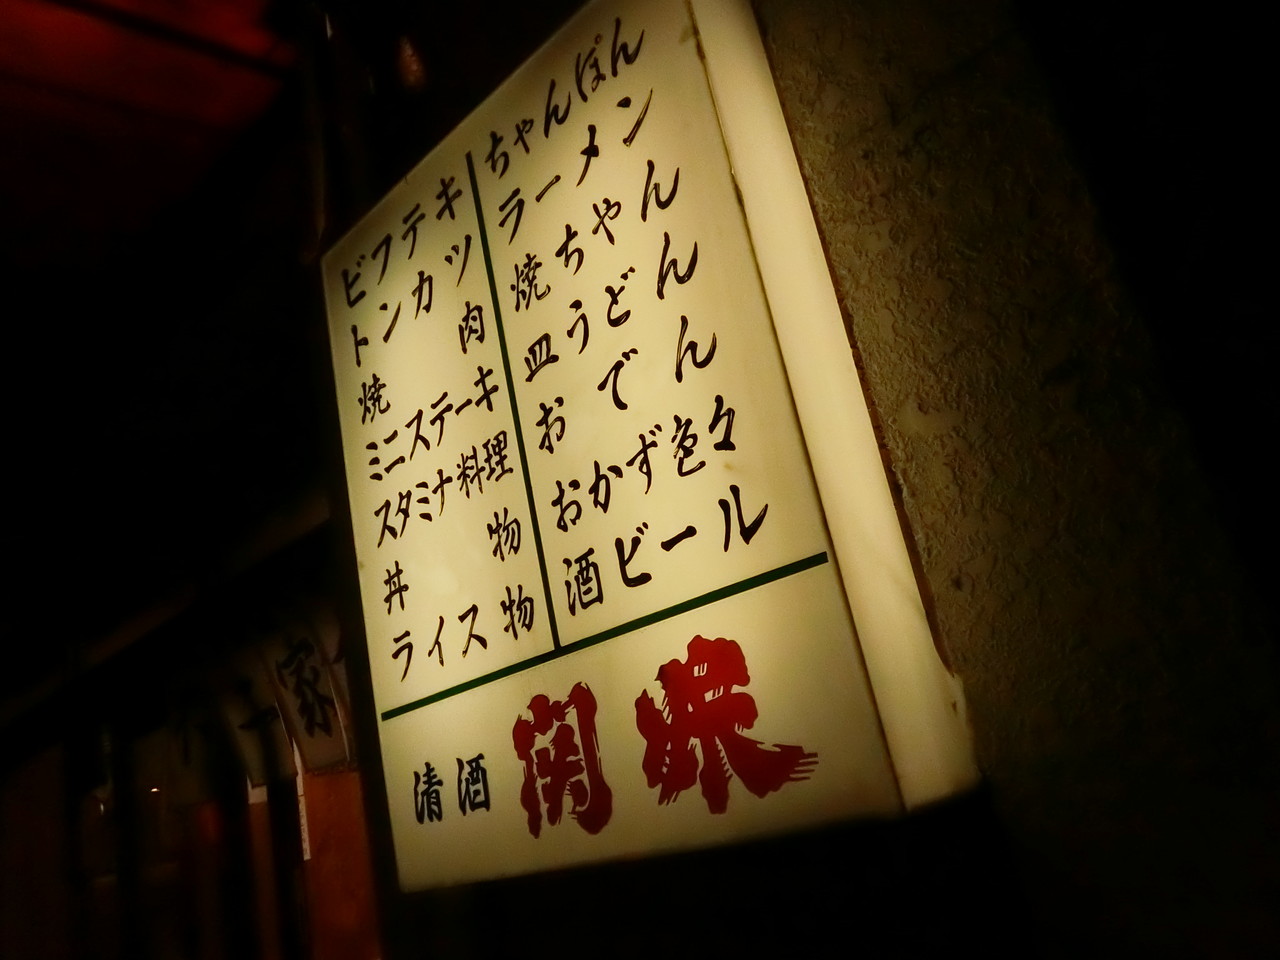 ちゃんぽん
ラーメン
焼ちゃん
皿うどん
おでん
おかず色々
酒ビール
ビフテキ
トンカツ
焼肉
ミニステーキ
スタミナ料理
丼物
ライス物
清酒 関娘
家